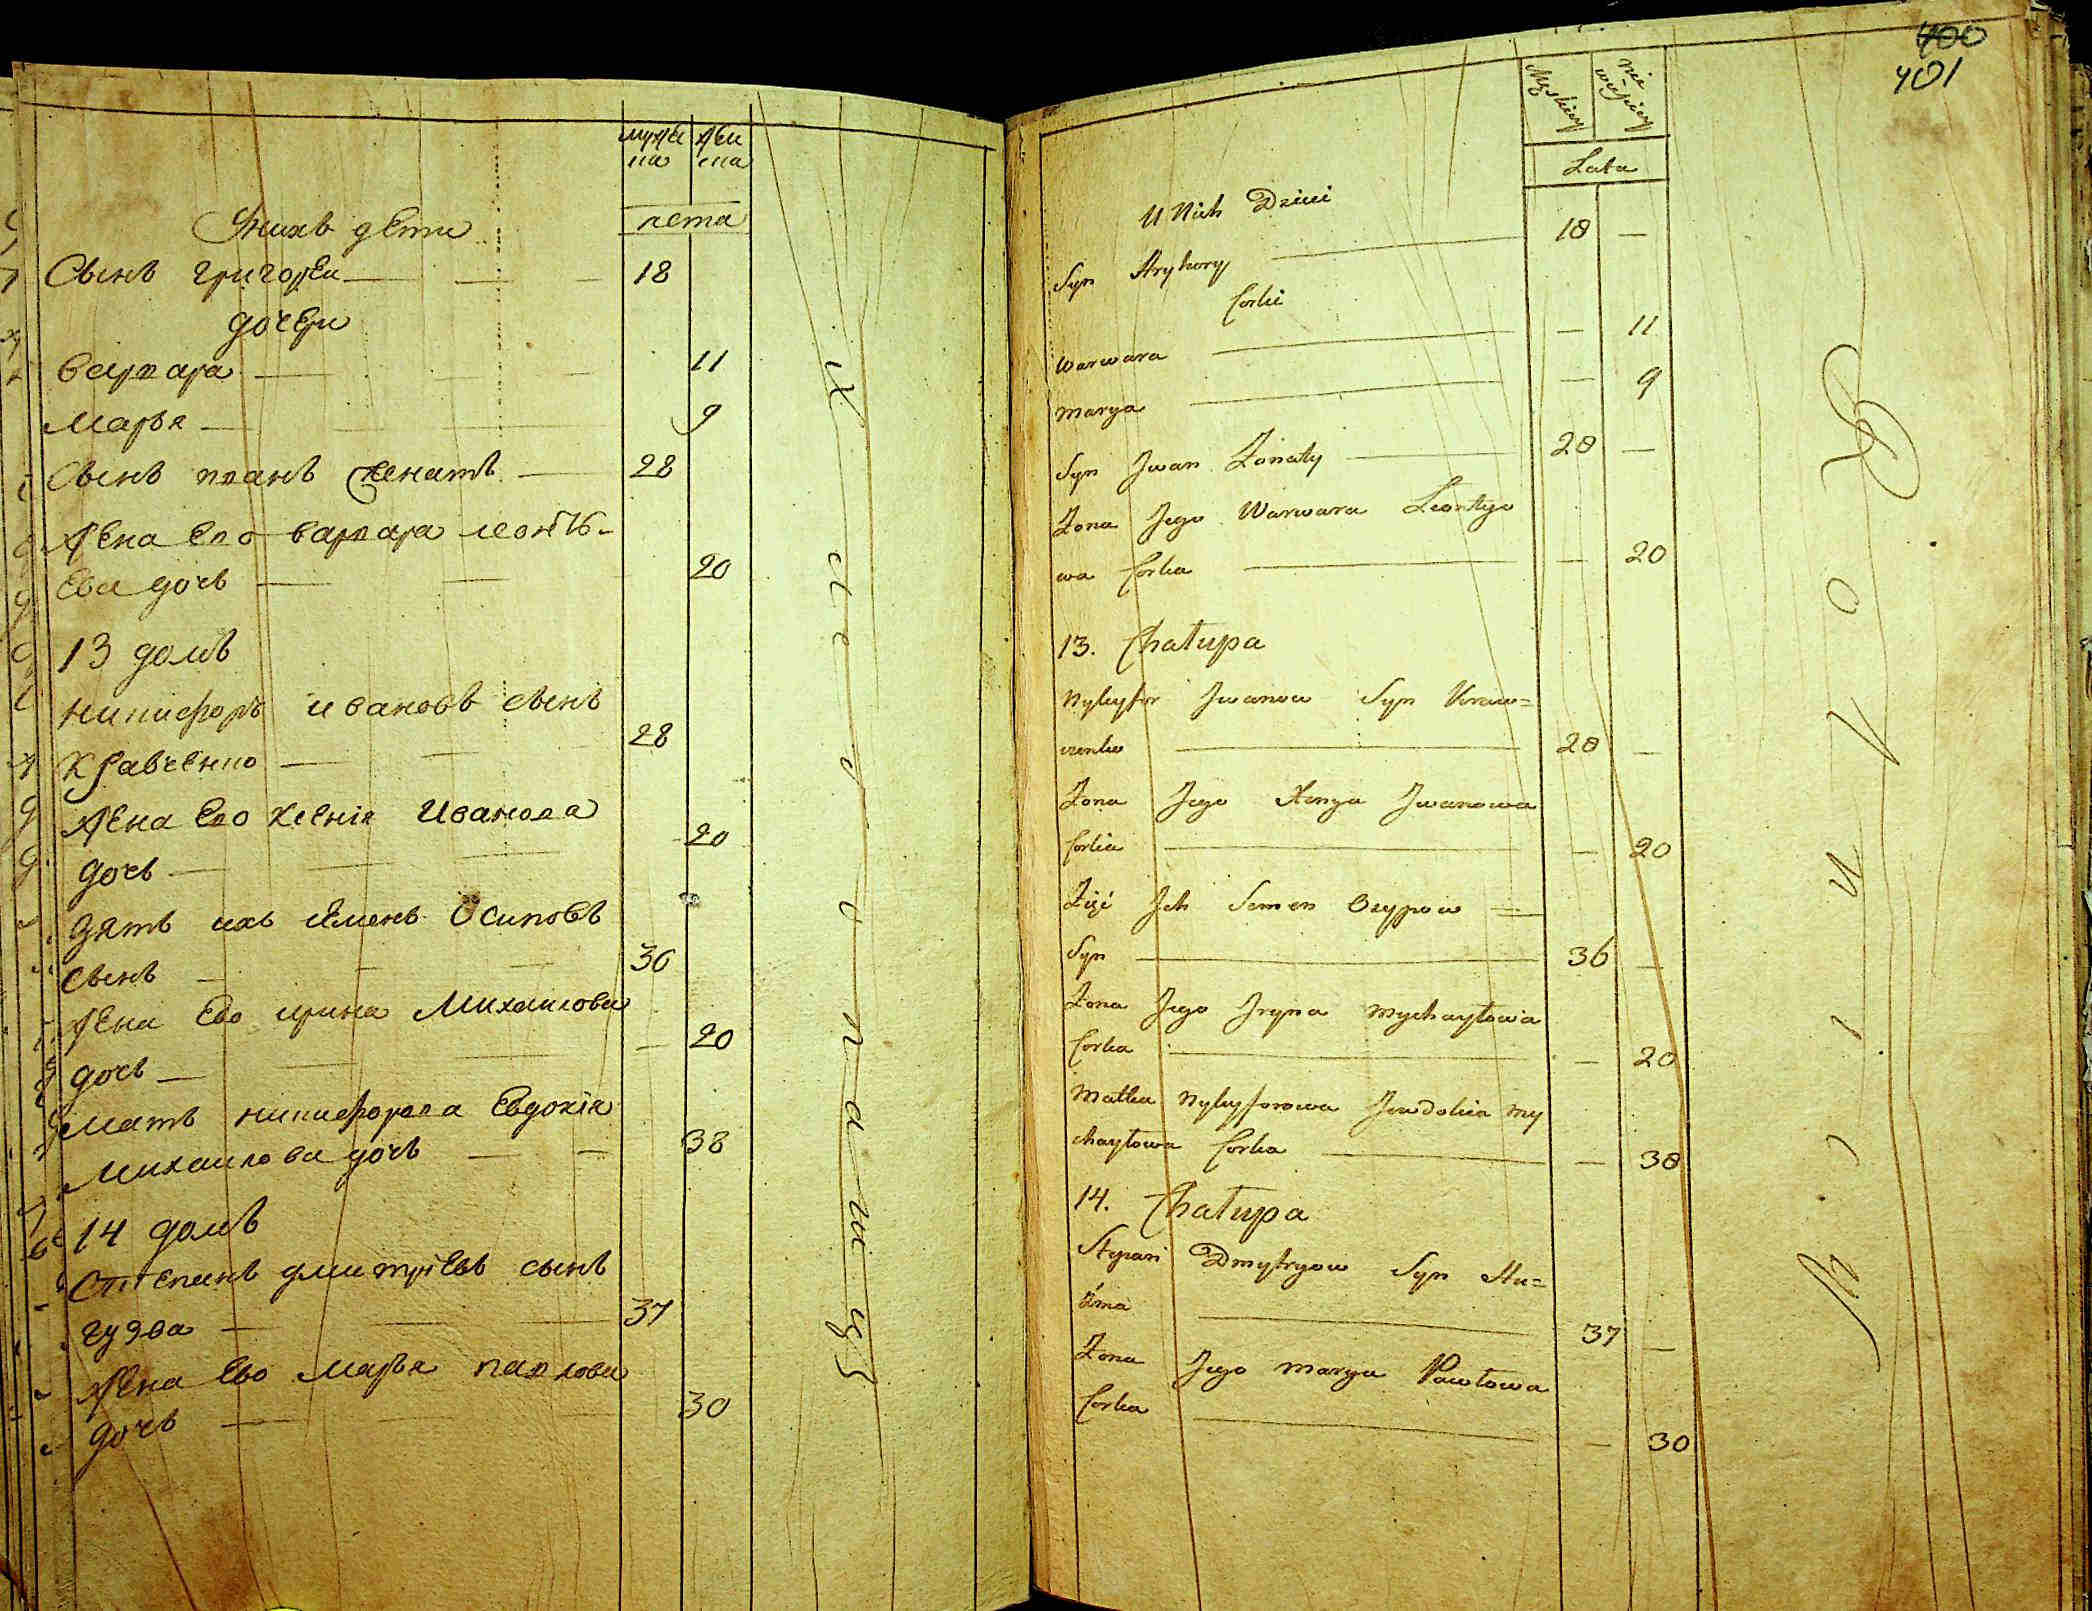 мужеска женска
лета
У нихъ дети
Сынъ григорей 18
дочери
варвара 11
Марья 9
Сынъ иванъ женатъ 28
жена его варвара леонть-
ева дочь 20
13 домъ
никифоръ ивановъ сынъ
Кравченко 28
жена Ево ксенія Иванова
дочь 20
зять ихъ семенъ Осиповъ
сынъ 36
жена Ево ирина Михаилова
дочь 20
мать никифорова Евдокія
Михаилова дочь 38
14 домъ
Степанъ дмитріевъ сынъ
гузва 37
жена Ево марья павлова
дочь 30
400
401
Męskiey Niewieściey
Lata
U Nich Dzieci
Syn Hryhory 18 —
Corki
Warwara — 11
Marya — 9
Syn Jwan Żonaty 28 —
Żona Jego Warwara Leontyo
wa Corka — 20
13. Chałupa
Nykyfor Jwanow Syn Kraw=
czenko 28 —
Żona Jego Xenya Jwanowa
Corka — 20
Zięć Jch Semen Osypow
Syn 36 —
Żona Jego Jryna Mychayłowa
Corka — 20
Matka Nykyforowa Jewdokia My
chayłowa Corka — 38
14. Chałupa
Stepan Dmytryow Syn Hu=
37 —
Żona Jego Marya Pawłowa
Corka — 30